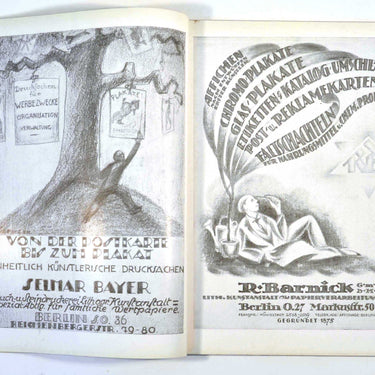 Drucksachen
für
WERBEZWECKE
ORGANISATION
VERWALTUNG
PLAKATE
VON DER POSTKARTE
BIS ZUM PLAKAT
NHEITLICH KÜNSTLERISCHE DRUCKSACHEN
SELMAR BAYER
BERLIN SO. 36
REICHENBERGERSTR. 79-80
AFFICHEN
CHROMO-PLAKATE
GLAS-PLAKATE
ETIKETTEN/KATALOG UMSCHL
POST- u. REKLAMEKARTEN
FALTSCHACHTELN
FÜR NAHRUNGSMITTEL u. CHEM. PRO
R. Barnick G·m
LITH. KUNSTANSTALT u. PAPIERVERARBEITUN
Berlin O. 27 Markusstr. 50
GEGRÜNDET 1875